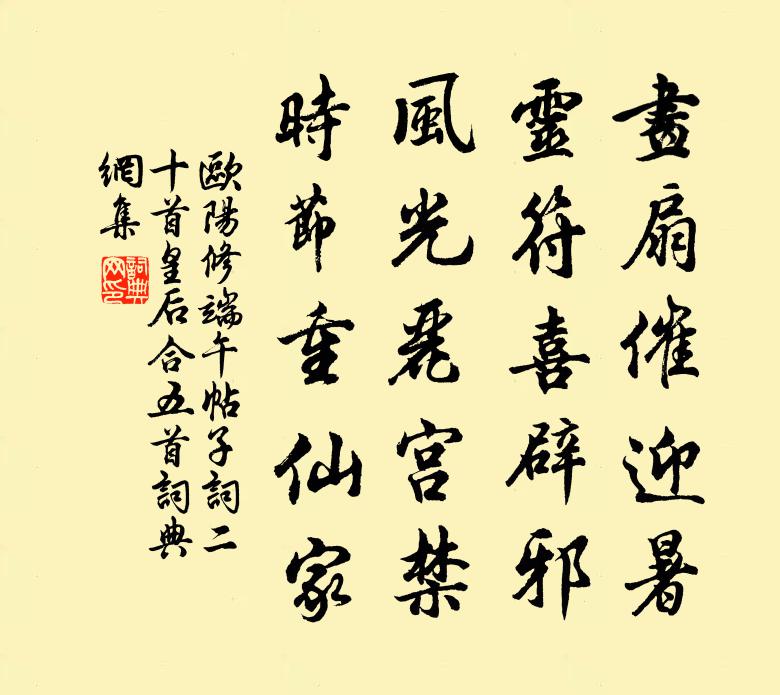 畫扇催迎暑
靈符喜辟邪
風光麗宮禁
時節重仙家
歐陽修端午帖子詞二
十首皇后合五首詞典
網集
詞典
网印